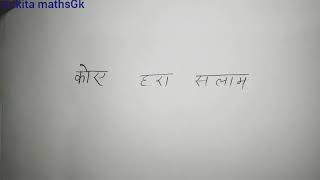 Ankita mathsGk
कोए हरा सलाम